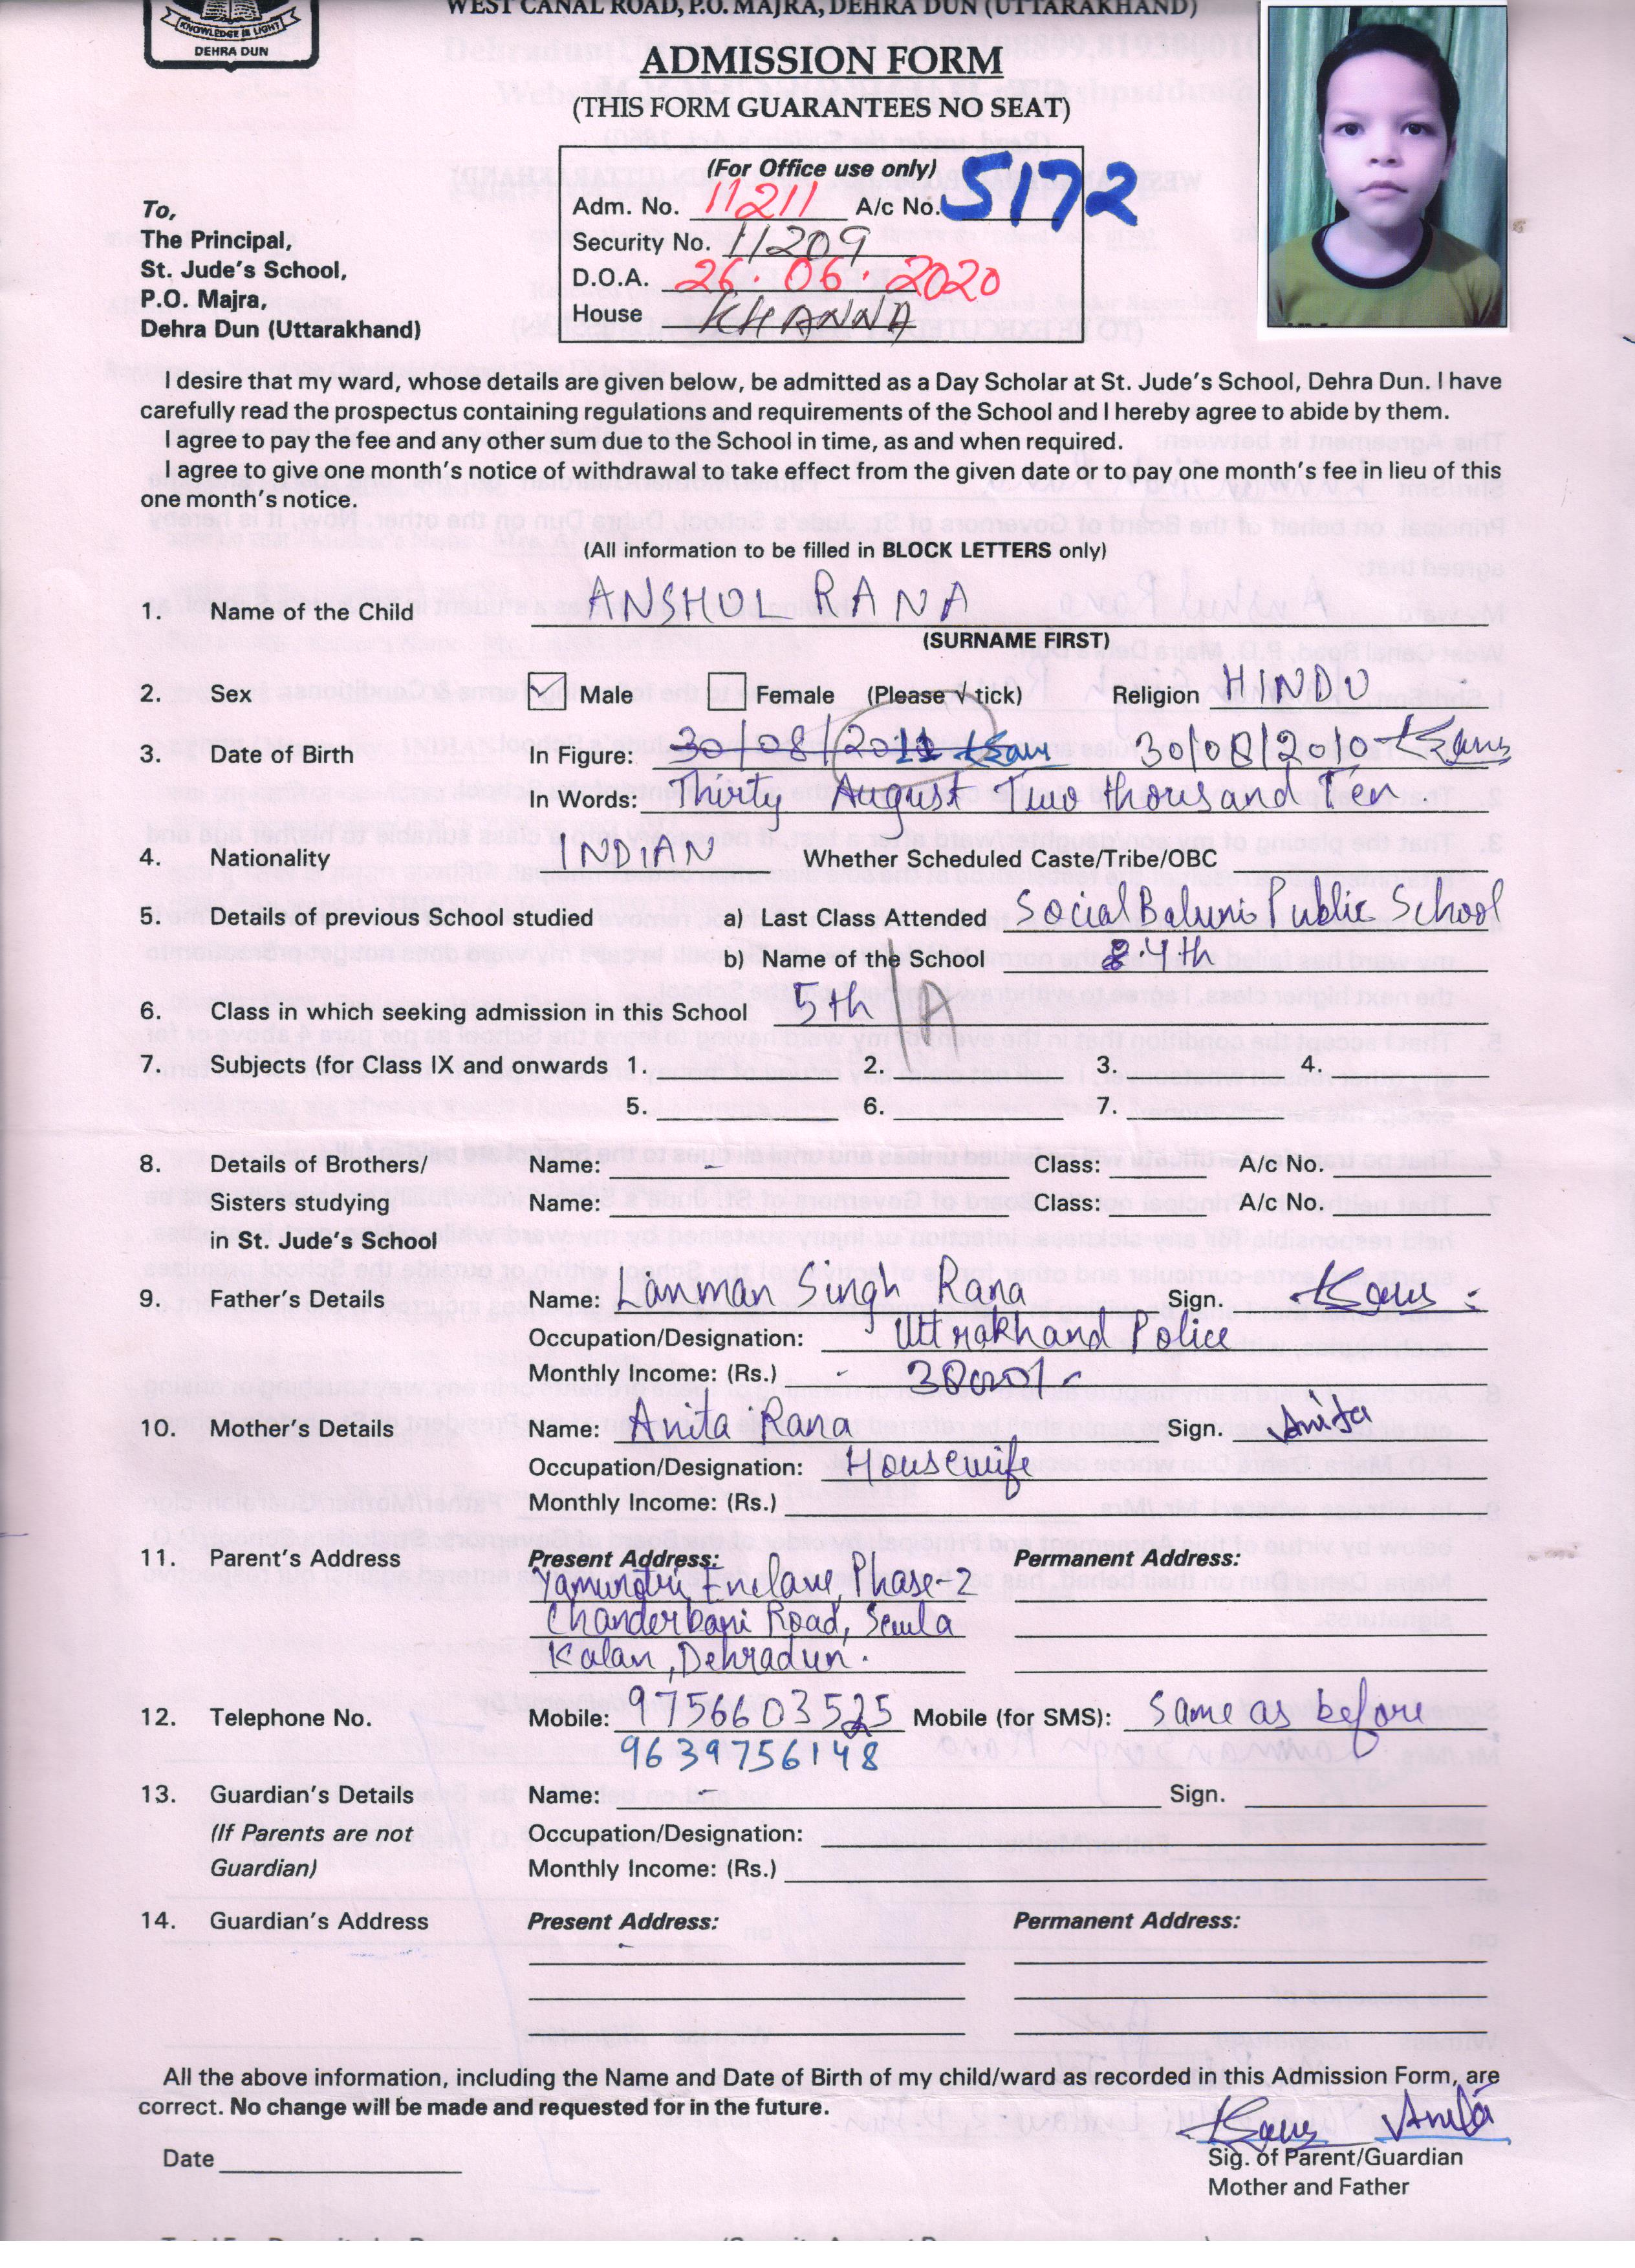 WEST CANAL ROAD, P.O. MAJRA, DEHRA DUN (UTTARAKHAND)
KNOWLEDGE IS LIGHT
DEHRA DUN
ADMISSION FORM
(THIS FORM GUARANTEES NO SEAT)
(For Office use only)
Adm. No. 11211 A/c No. 5172
Security No. 11209
D.O.A. 26.06.2020
House KHANNA
To,
The Principal,
St. Jude's School,
P.O. Majra,
Dehra Dun (Uttarakhand)
I desire that my ward, whose details are given below, be admitted as a Day Scholar at St. Jude's School, Dehra Dun. I have
carefully read the prospectus containing regulations and requirements of the School and I hereby agree to abide by them.
I agree to pay the fee and any other sum due to the School in time, as and when required.
I agree to give one month's notice of withdrawal to take effect from the given date or to pay one month's fee in lieu of this
one month's notice.
(All information to be filled in BLOCK LETTERS only)
1. Name of the Child ANSHOL RANA
(SURNAME FIRST)
2. Sex Male Female (Please √ tick) Religion HINDU
3. Date of Birth In Figure: 30/08/2011 30/08/2010
In Words: Thirty August Two thousand Ten.
4. Nationality INDIAN Whether Scheduled Caste/Tribe/OBC
5. Details of previous School studied a) Last Class Attended Social Baluni Public School
b) Name of the School 4th
6. Class in which seeking admission in this School 5th / A
7. Subjects (for Class IX and onwards 1. 2. 3. 4.
5. 6. 7.
8. Details of Brothers/ Name: - Class: A/c No.
Sisters studying Name: Class: A/c No.
in St. Jude's School
9. Father's Details Name: Lanman Singh Rana Sign.
Occupation/Designation: Uttrakhand Police
Monthly Income: (Rs.) - 38000/-
10. Mother's Details Name: Anita Rana Sign. Anita
Occupation/Designation: Housewife
Monthly Income: (Rs.)
11. Parent's Address Present Address: Permanent Address:
Yamunotri Enclave, Phase-2
Chanderbani Road, Seula
Kalan, Dehradun.
12. Telephone No. Mobile: 9756603525 Mobile (for SMS): same as before
9639756148
13. Guardian's Details Name: - Sign.
(If Parents are not Occupation/Designation:
Guardian) Monthly Income: (Rs.)
14. Guardian's Address Present Address: Permanent Address:
All the above information, including the Name and Date of Birth of my child/ward as recorded in this Admission Form, are
correct. No change will be made and requested for in the future.
Anita
Date Sig. of Parent/Guardian
Mother and Father